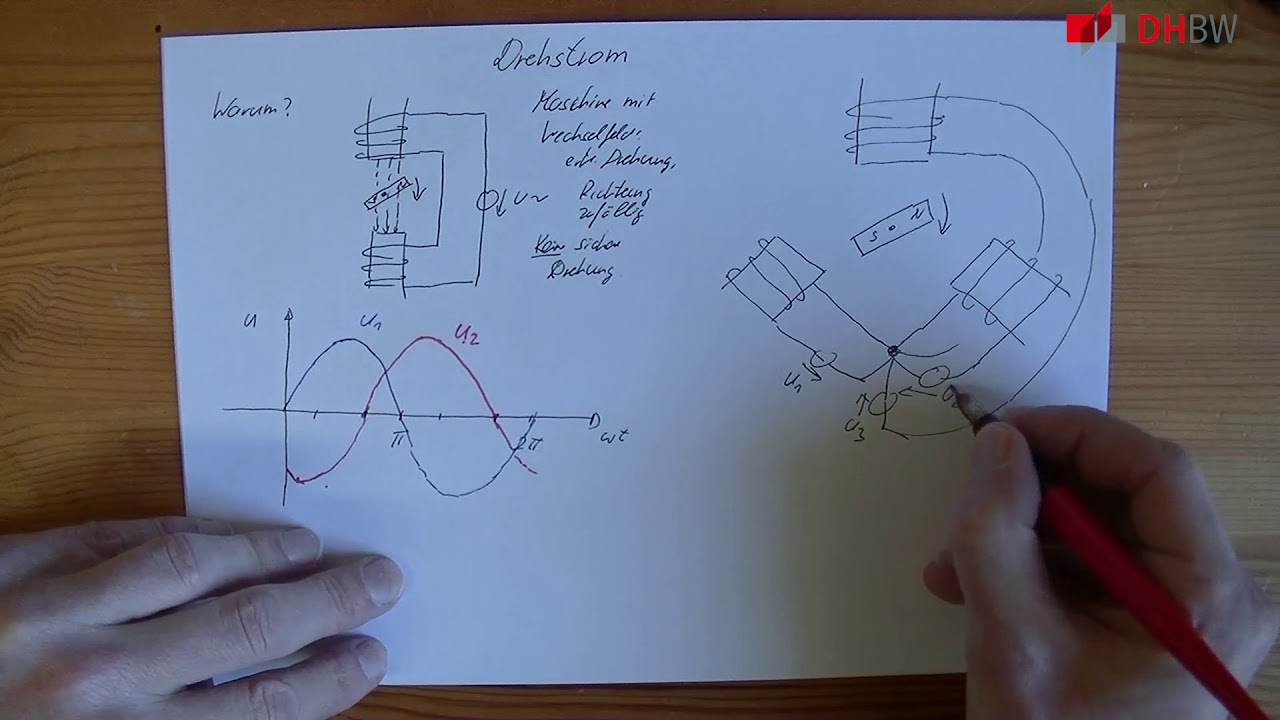 DHBW
Drehstrom
Warum?
Maschine mit
Wechselfeld:
erk. Drehung,
Richtung
zufällig
Kein sichere
Drehung
U~
S N
U
U1
U2
π
2π
ωt
U1
U3